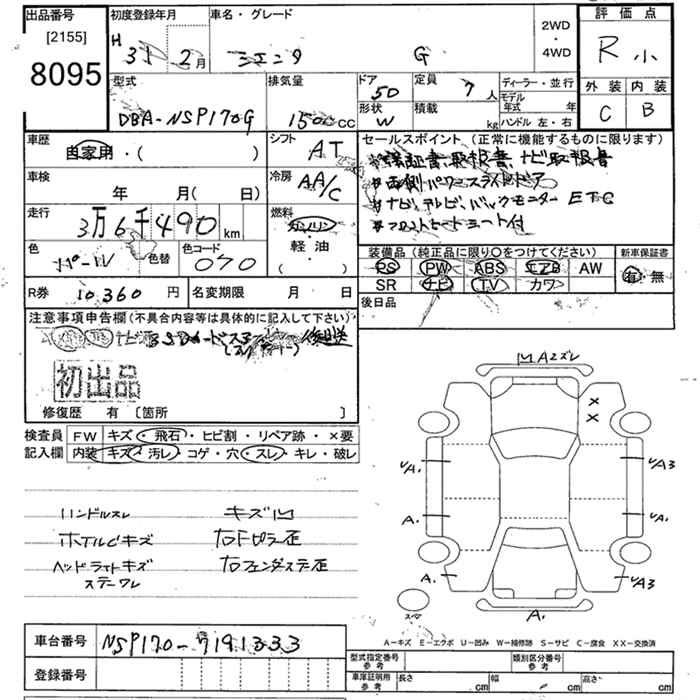 出品番号
[2155]
8095
初度登録年月
H 31 2月
車名・グレード
シエンタ G
2WD
・
4WD
評価点
R 小
外装 内装
C B
型式
DBA-NSP170G
排気量
1500cc
ドア
50
形状
W
定員
7人
積載
kg
ディーラー・並行
モデル年式 年
ハンドル 左・右
車歴
自家用・( )
シフト
AT
セールスポイント(正常に機能するものに限ります)
*保証書、取扱書、ナビ取扱書
*両側パワースライドドア
*ナビ、テレビ、バックモニター ETC
*フロントシート
車検
年 月( 日)
冷房
AA/C
走行
3万6千490km
燃料
ガソリン
軽油
( )
色
パールV
色替
色コード
070
装備品(純正品に限り○をつけてください)
PS PW ABS エアB AW
SR ナビ TV カワ
新車保証書
有・無
R券 10,360円
名変期限 月 日
後日品
注意事項申告欄(不具合内容等は具体的に記入して下さい)
ナビ SDカード 後日送
初出品
修復歴 有 [箇所 ]
検査員記入欄
FW キズ・飛石・ヒビ割・リペア跡・×要
内装 キズ・汚レ・コゲ・穴・スレ・キレ・破レ
凹A2ズレ
ハンドルスレ キズ凹
ホイルCキズ 右Fピラー正
ヘッドライトキズ 右フェンダステー正
ステーワレ
A1
A3
A1
A1
A1
A3
A1
スペア
A-キズ E-エクボ U-凹み W-補修跡 S-サビ C-腐食 XX-交換済
車台番号 NSP170-7191333
登録番号
型式指定番号 参考
類別区分番号 参考
車庫証明用 参考
長さ cm 幅 cm 高さ cm